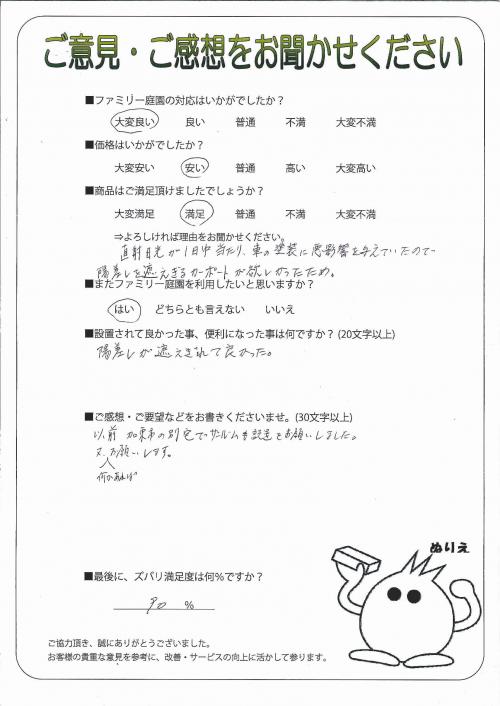 ご意見・ご感想をお聞かせください
■ファミリー庭園の対応はいかがでしたか？
大変良い　良い　普通　不満　大変不満
■価格はいかがでしたか？
大変安い　安い　普通　高い　大変高い
■商品はご満足頂けましたでしょうか？
大変満足　満足　普通　不満　大変不満
⇒よろしければ理由をお聞かせください。
直射日光が1日中当たり、車の塗装に悪影響を与えていたので
陽差しを遮えぎるカーポートが欲しかったため。
■またファミリー庭園を利用したいと思いますか？
はい　どちらとも言えない　いいえ
■設置されて良かった事、便利になった事は何ですか？(20文字以上)
陽差しが遮えぎれて良かった。
■ご感想・ご要望などをお書きくださいませ。(30文字以上)
以前 加東市の別宅でサンルームを設置をお願いしました。
又、お願いします。
何かあれば
ぬりえ
■最後に、ズバリ満足度は何％ですか？
90 ％
ご協力頂き、誠にありがとうございました。
お客様の貴重な意見を参考に、改善・サービスの向上に活かして参ります。